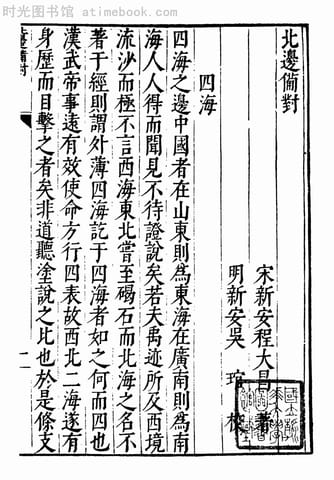 时光图书馆 - atimebook.com
北邊備對
宋新安程大昌著
明新安吳琯校
四海
四海之邊中國者在山東則為東海在廣南則為南
海人人得而聞見不待證說矣若夫禹迹所及西境
流沙而極不言西海東北嘗至碣石而北海之名不
著于經則謂外薄四海訖于四海者如之何而四也
漢武帝事遠有效使命方行四表故西北二海遂有
身歷而目擊之者矣非道聽塗說之比也於是條支